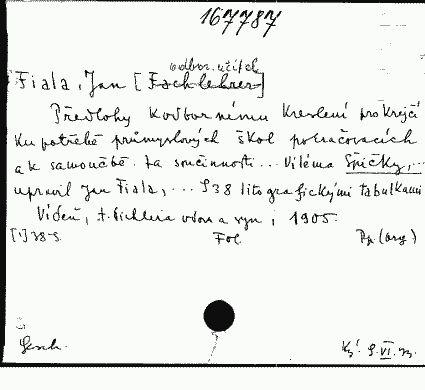 167787
odbor. učitel
Fiala, Jan [Fachlehrer]
Předlohy k odbornému kreslení pro krejčí
ku potřebě průmyslových škol pokračovacích
a k samoučbě. Za součinnosti ... Viléma Špičky, ...
upravil Jan Fiala, ... S 38 litografickými tabulkami
Vídeň, A. Pichlera vdova a syn, 1905.
[1] 38 S. Fol. Pp. (org)
Gesch.